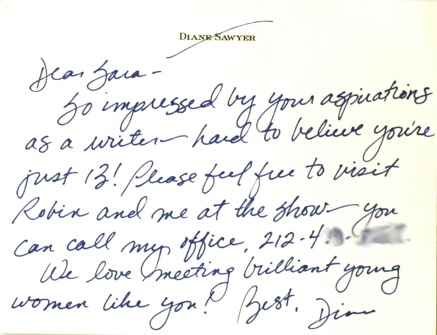 DIANE SAWYER
Dear Sara -
So impressed by your aspirations
as a writer - hard to believe you're
just 13! Please feel free to visit
Robin and me at the show - you
can call my office, 212-4
We love meeting brilliant young
women like you! Best, Diane